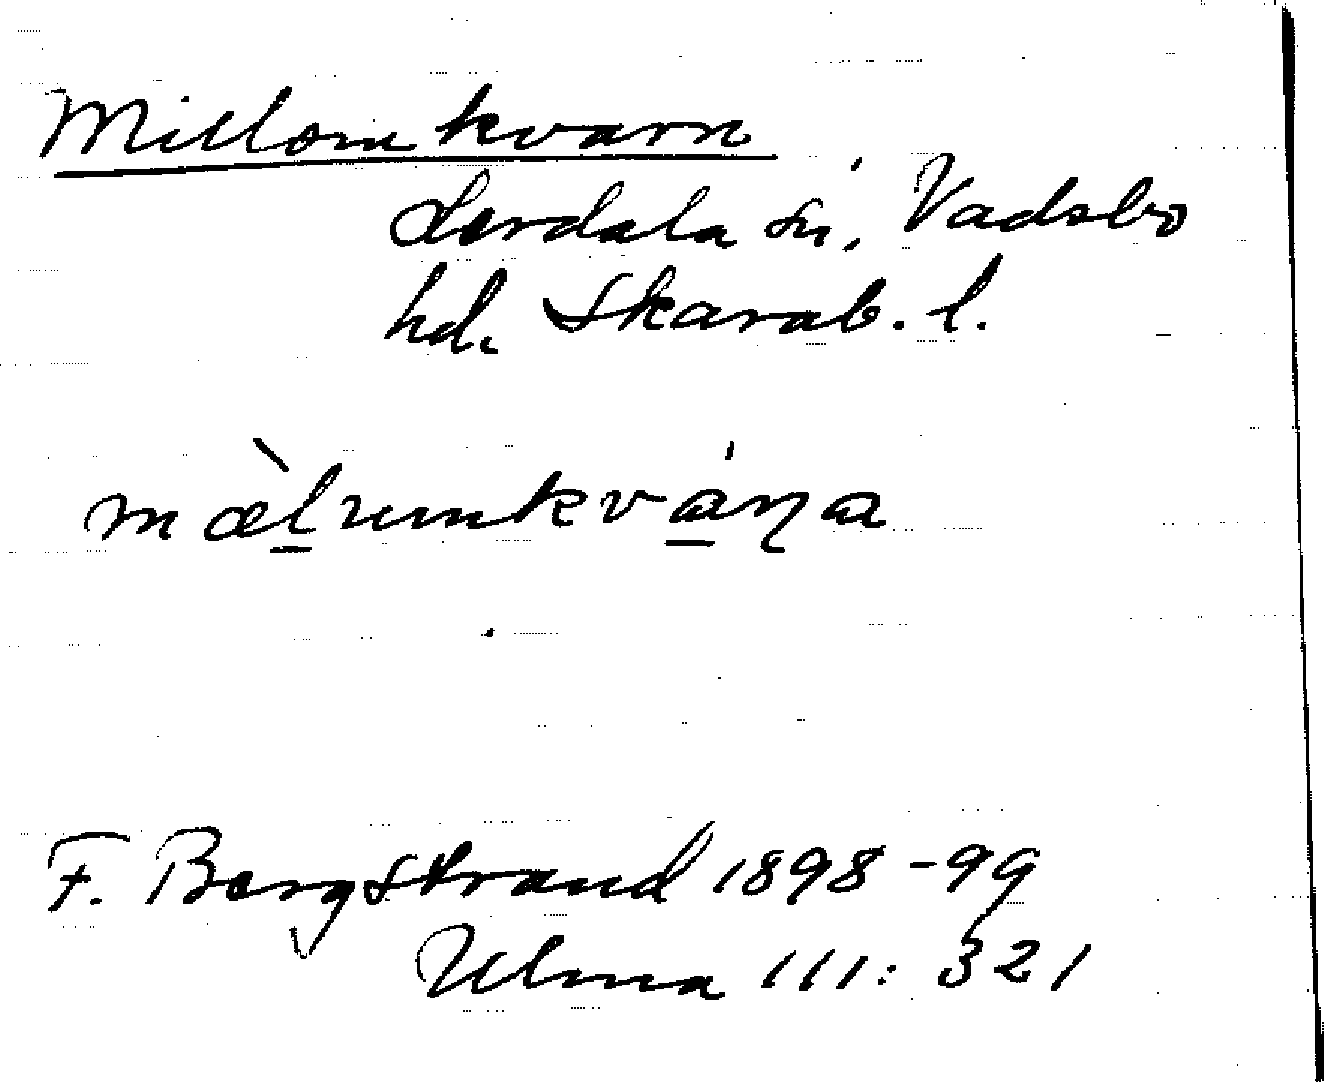 Millomkvarn
Lerdala sn, Vadsbo
hd. Skarab. l.
mæ̀l̠rumkvá̠ɳa
F. Bergstrand 1898-99
Ulma 111: 321